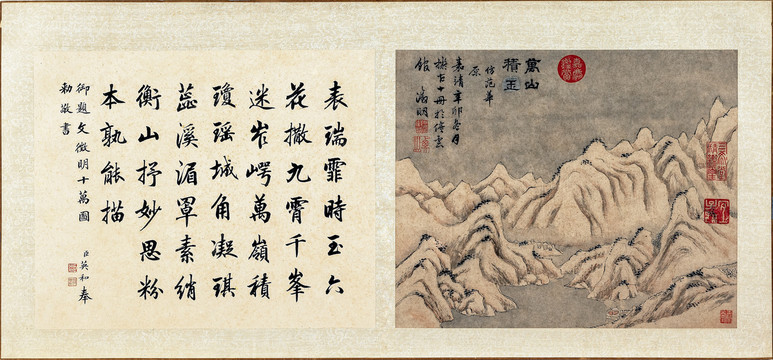 萬山
積玉
仿范華
原
嘉靖辛卯春月
十冊於停雲
館 徵明
表瑞霏時玉六
花撒九霄千峯
迷岝崿萬嶺積
瓊瑤城角凝琪
蕊溪湄罩素綃
衡山抒妙思粉
本孰能描
御題文徵明十萬圖 臣英和奉
勅敬書